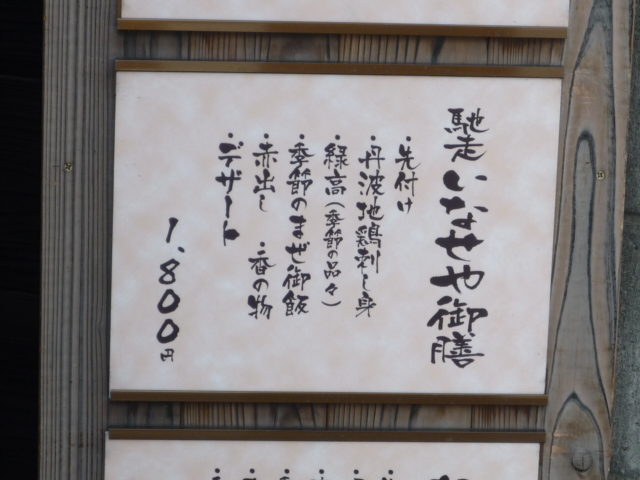 馳走 いなせや御膳
・先付け
・丹波地鶏刺し身
・縁高(季節の品々)
・季節のまぜ御飯
・赤出し 香の物
・デザート
1,800円